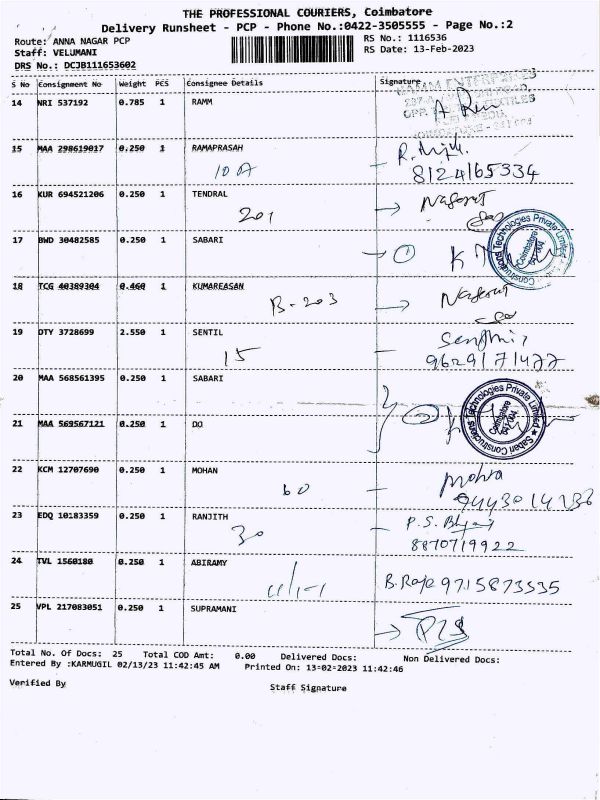 THE PROFESSIONAL COURIERS, Coimbatore
Delivery Runsheet - PCP - Phone No.:0422-3505555 - Page No.:2
Route: ANNA NAGAR PCP
RS No.: 1116536
Staff: VELUMANI
RS Date: 13-Feb-2023
DRS No.: DCJB111653602
S No Consignment No Weight PCS Consignee Details Signature
14 NRI 537192 0.785 1 RAMM
15 MAA 298619017 0.250 1 RAMAPRASAH
10 A 8124165334
16 KUR 694521206 0.250 1 TENDRAL
201
17 BWD 30482585 0.250 1 SABARI
1
Saban Constructions Technologies Private Limited
Coimbatore
641 004
18 TCG 40389304 0.460 1 KUMAREASAN
B-203
19 DTY 3728699 2.550 1 SENTIL
15 9629171477
20 MAA 568561395 0.250 1 SABARI
21 MAA 569567121 0.250 1 DO
2
Saban Constructions Technologies Private Limited
Coimbatore
641 004
22 KCM 12707690 0.250 1 MOHAN
60 9443014236
23 EDQ 10183359 0.250 1 RANJITH
30 8870719922
24 TVL 1560180 0.250 1 ABIRAMY
B. Raja 9715873535
25 VPL 217083051 0.250 1 SUPRAMANI
Total No. Of Docs: 25 Total COD Amt: 0.00 Delivered Docs: Non Delivered Docs:
Entered By :KARMUGIL 02/13/23 11:42:45 AM Printed On: 13-02-2023 11:42:46
Verified By Staff Signature